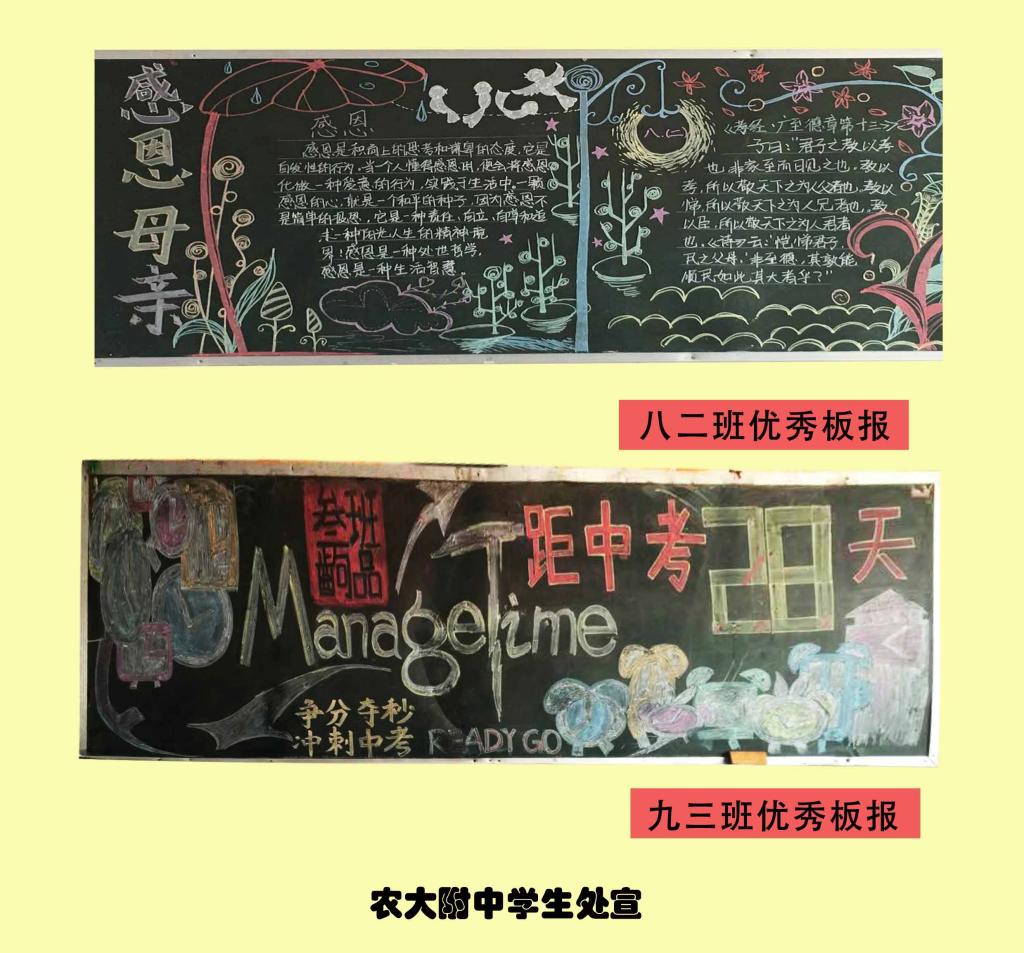 感恩母亲
感恩
感恩是积商上的思考和谦卑的态度，它是
自发性的行为。当个人懂得感恩用，便会将感恩
化做一种爱意的行为，实践于生活中。一颗
感恩的心，就是一个和平的种子，因为感恩不
是简单的报恩，它是一种责任、自立、自尊和追
求一种阳光人生的精神境
界！感恩是一种处世哲学，
感恩是一种生活智慧。
八.(二)
《孝经·广至德章第十三》
子曰：“君子之教以孝
也，非家至而日见之也，教以
孝，所以敬天下之为人父者也，教以
悌，所以敬天下之为人兄者也，教
以臣，所以敬天下之为人君者
也，《诗》云：‘恺悌君子，
民之父母’非至德，其孰能
顺民如此其大者乎？”
八二班优秀板报
叁班
品
距中考28天
ManageTime
争分夺秒
冲刺中考 READY GO
九三班优秀板报
农大附中学生处宣